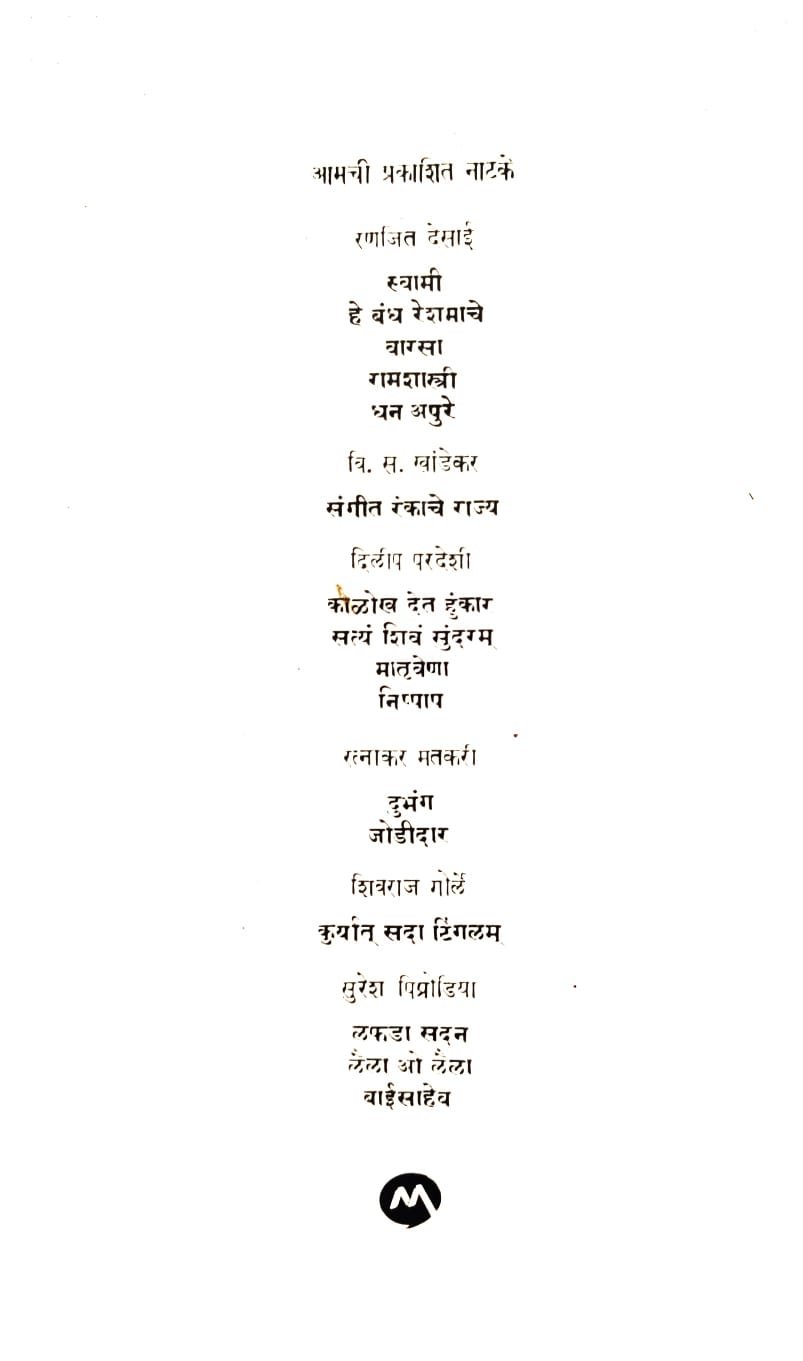 आमची प्रकाशित नाटके
रणजित देसाई
स्वामी
हे बंध रेशमाचे
वारसा
रामशास्त्री
धन अपुरे
वि. स. खांडेकर
संगीत रंकाचे राज्य
दिलीप परदेशी
काळोख देत हुंकार
सत्यं शिवं सुंदरम्
मातृवेणा
निष्पाप
रत्नाकर मतकरी
दुभंग
जोडीदार
शिवराज गोर्ले
कुर्यात् सदा टिंगलम्
सुरेश पिप्रोडिया
लफडा सदन
लैला ओ लैला
बाईसाहेब